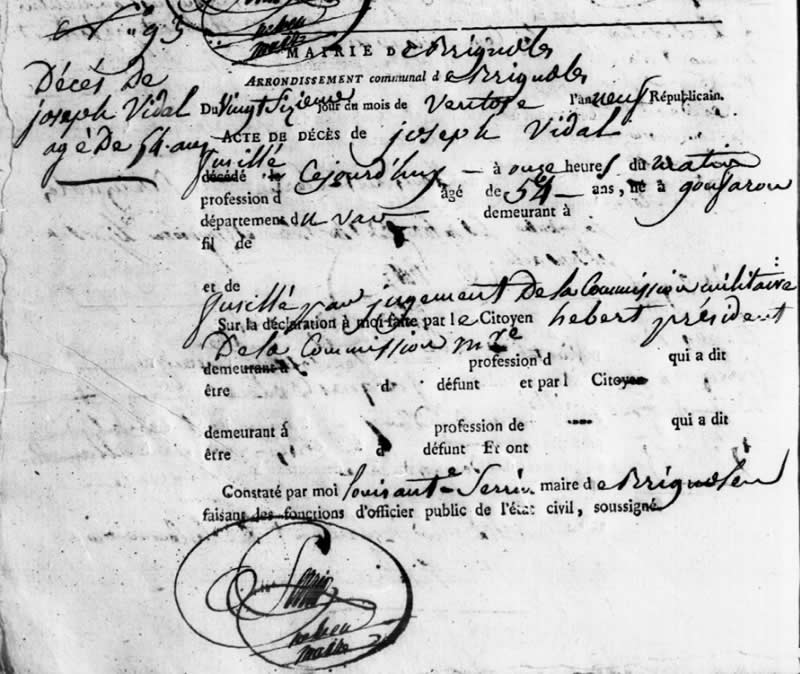 n° 93
Décès De
joseph Vidal
agé De 54. ans
MAIRIE De Brignolles
ARRONDISSEMENT communal de Brignolles
Du Vingt Sixieme jour du mois de Ventose l'an neuf Républicain.
ACTE DE DÉCÈS de joseph Vidal
fusillé
décédé le Cejourd'huy à onze heures du matin
profession d âgé de 54 ans, né à gonfaron
département du var demeurant à
fil de
et de
fusillé par jugement De la Commission militaire
Sur la déclaration à moi faite par le Citoyen hebert président
De la Commission mre
demeurant à profession d qui a dit
être d défunt et par l Citoyen
demeurant à profession de qui a dit
être d défunt Et ont
Constaté par moi louis ant.e Serrin maire de Brignolles
faisant des fonctions d'officier public de l'état civil, soussigné
Serrin
maire